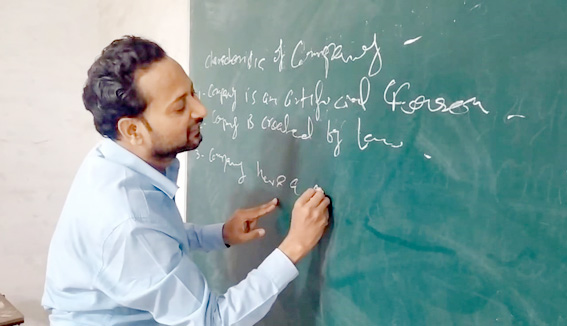 characteristic of Company -
1. Company is an artificial Person -
2. Company is created by law -
3. Company have a